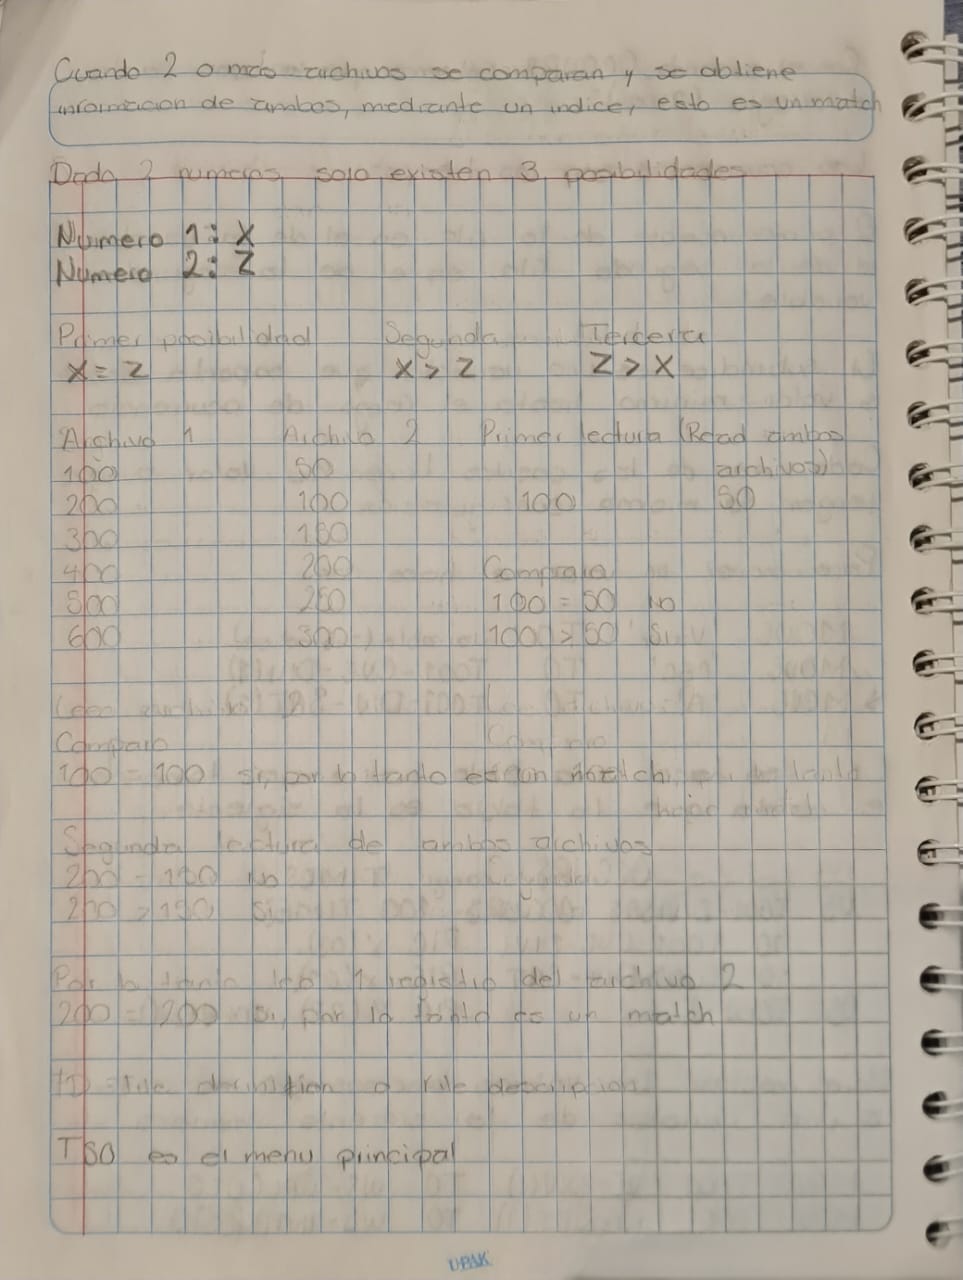 Cuando 2 o mas archivos se comparan y se obtiene
informacion de ambos, mediante un indice, esto es un match
Dado 2 numeros solo existen 3 posibilidades
Numero 1: X
Numero 2: Z
Primer posibilidad Segunda Tercera
X = Z X > Z Z > X
Archivo 1 Archivo 2 Primer lectura (Read ambos
100 50 archivos)
200 100 100 50
300 150
400 200 Comparo
500 250 100 = 50 No
600 300 1000 > 50 Si
Leo 2
Comparo
100 = 100 si, por lo tanto es un match
Segunda lectura de ambos archivos
200 = 150 No
200 > 150 Si
Por lo tanto leo 1 registro del archivo 2
200 = 200 si, por lo tanto es un match
FD = File definition o file description
TSO es el menu principal
UPAK